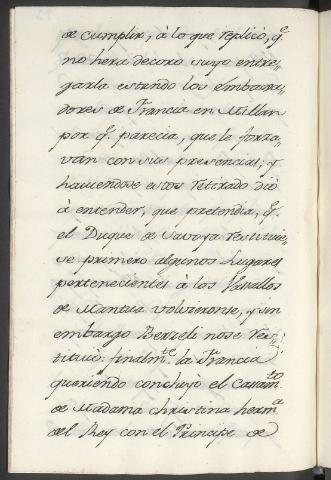 de cumplir, à lo que replicò, q.e
no hera decoro suyo entre,,
garla estando los embaxa,,
dores de Francia en Millan
por q.e parecia, que le forza,,
van con sus presencias; y
haviendose estos retirado diò
à entender, que pretendia, q.e
el Duque de Savoya restituie,,
se primero algunos Lugares
pertenecientes à los Vasallos
de Mantua volvieronse, y sin
embargo Berzeli no se res,,
tituiò. finalm.te la Francia
queriendo concluyò el Casam.to
de Madama Christina herm.a
del Rey con el Principe de